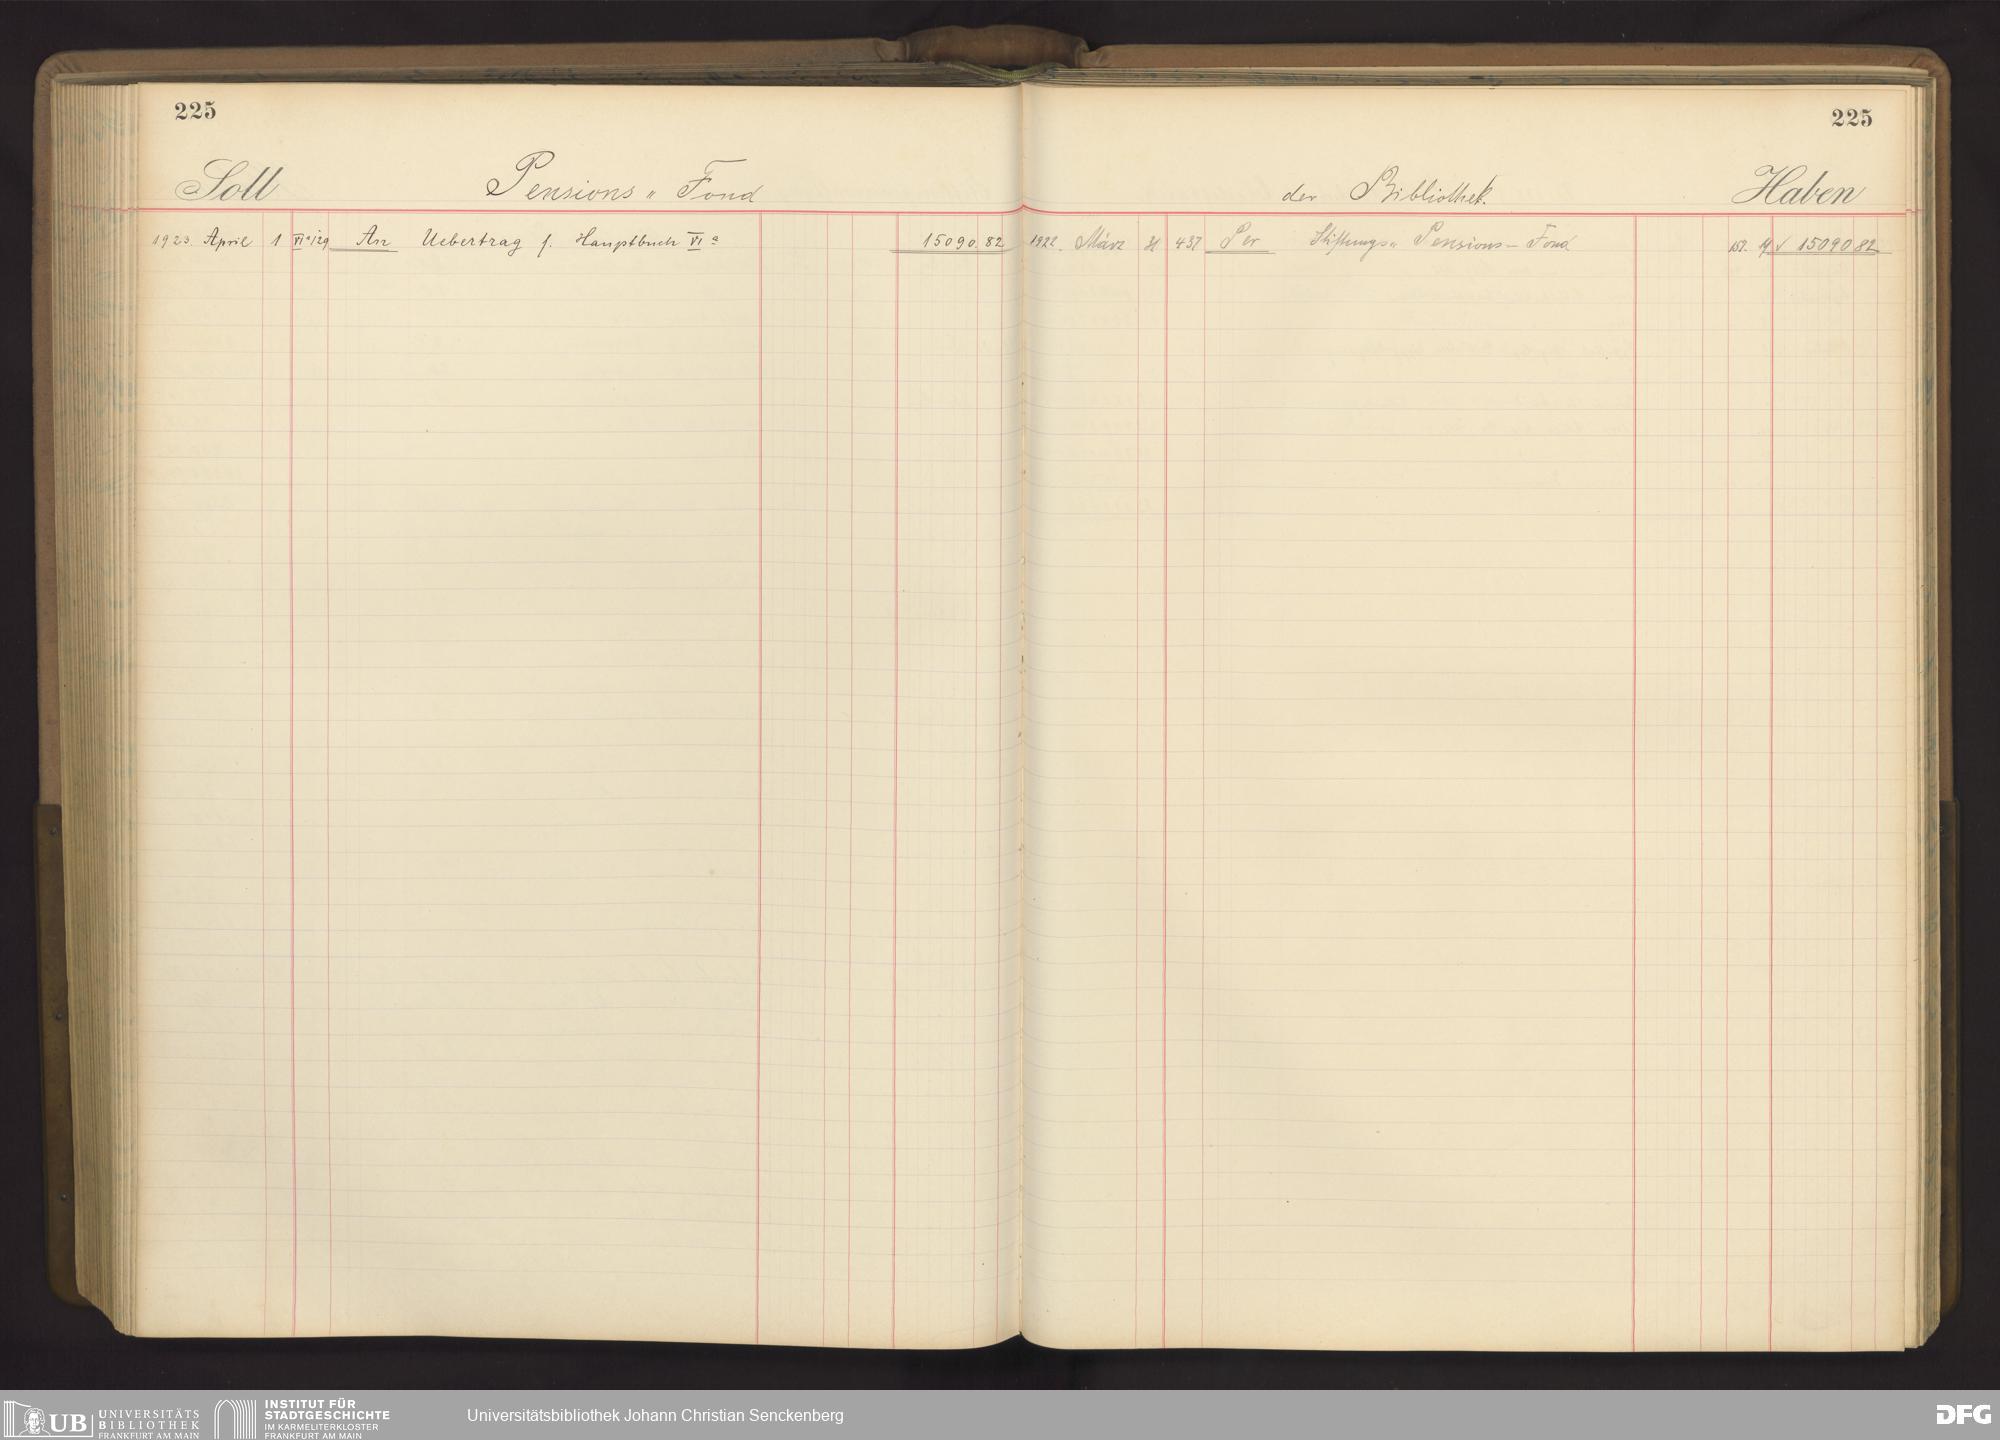 225
Soll Pensions " Fond
1923. April 1 VIa/29 An Uebertrag f. Hauptbuch VIa 15090.82
225
der Bibliothek. Haben
1922. März 31 437 Per Stiftungs " Pensions - Fond 15090 82
UB UNIVERSITÄTS
BIBLIOTHEK
FRANKFURT AM MAIN
INSTITUT FÜR
STADTGESCHICHTE
IM KARMELITERKLOSTER
FRANKFURT AM MAIN
Universitätsbibliothek Johann Christian Senckenberg
DFG